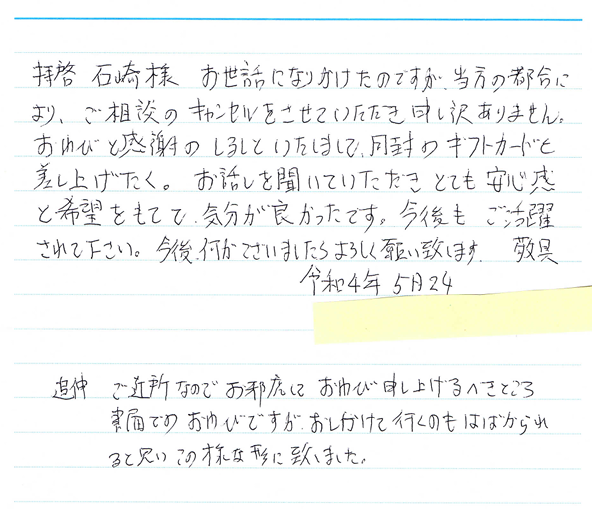 拝啓 石崎様 お世話になりかけたのですが、当方の都合に
より、ご相談のキャンセルをさせていただき申し訳ありません。
おわびと感謝のしるしといたしまして、同封のギフトカードを
差し上げたく。 お話しを聞いていただき とても安心感
と希望をもてて、気分が良かったです。今後も ご活躍
されて下さい。今後、何かございましたらよろしく願い致します。 敬具
令和4年 5月24
追伸 ご近所なので お邪魔して おわび申し上げるべきところ
書面でのおわびですが、おしかけて行くのもはばかられ
ると思い この様な形に致しました。